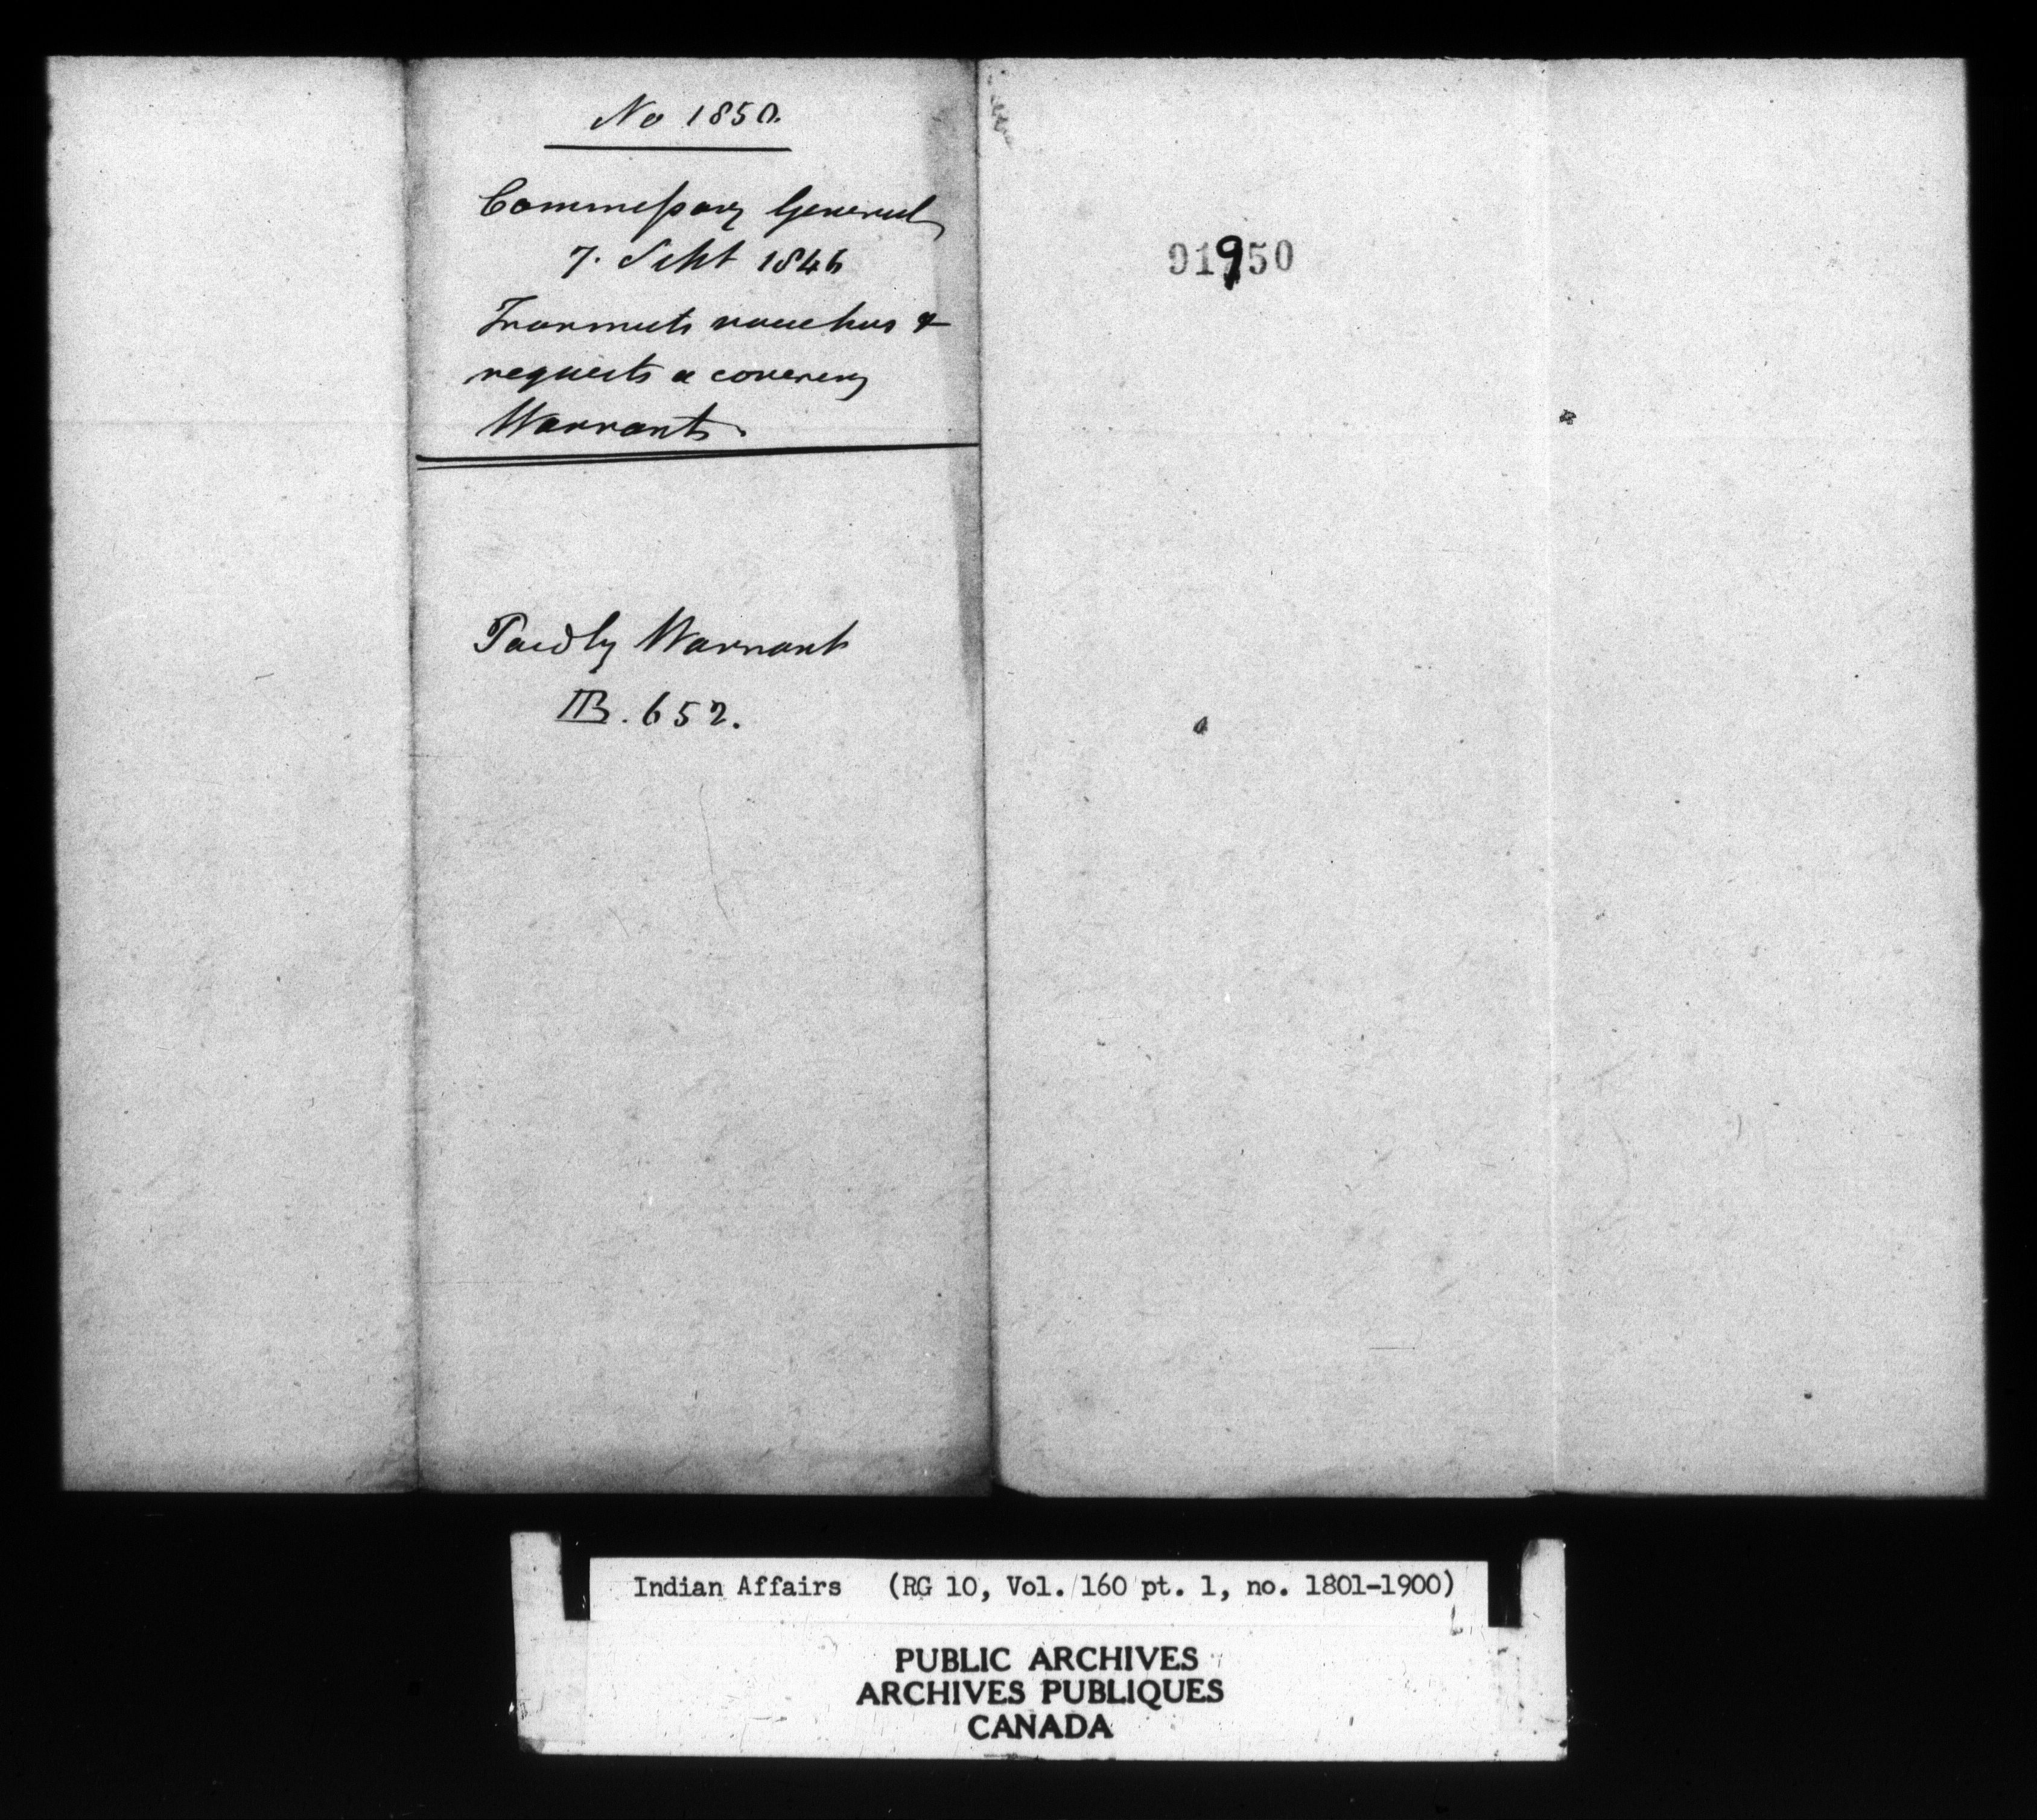 No 1850.
Commissary General
7. Sept 1846
Transmits vouchers &
requests a covering
Warrant.
Paid by Warrant
B. 652.
91950
Indian Affairs (RG 10, Vol. 160 pt. 1, no. 1801-1900)
PUBLIC ARCHIVES
ARCHIVES PUBLIQUES
CANADA